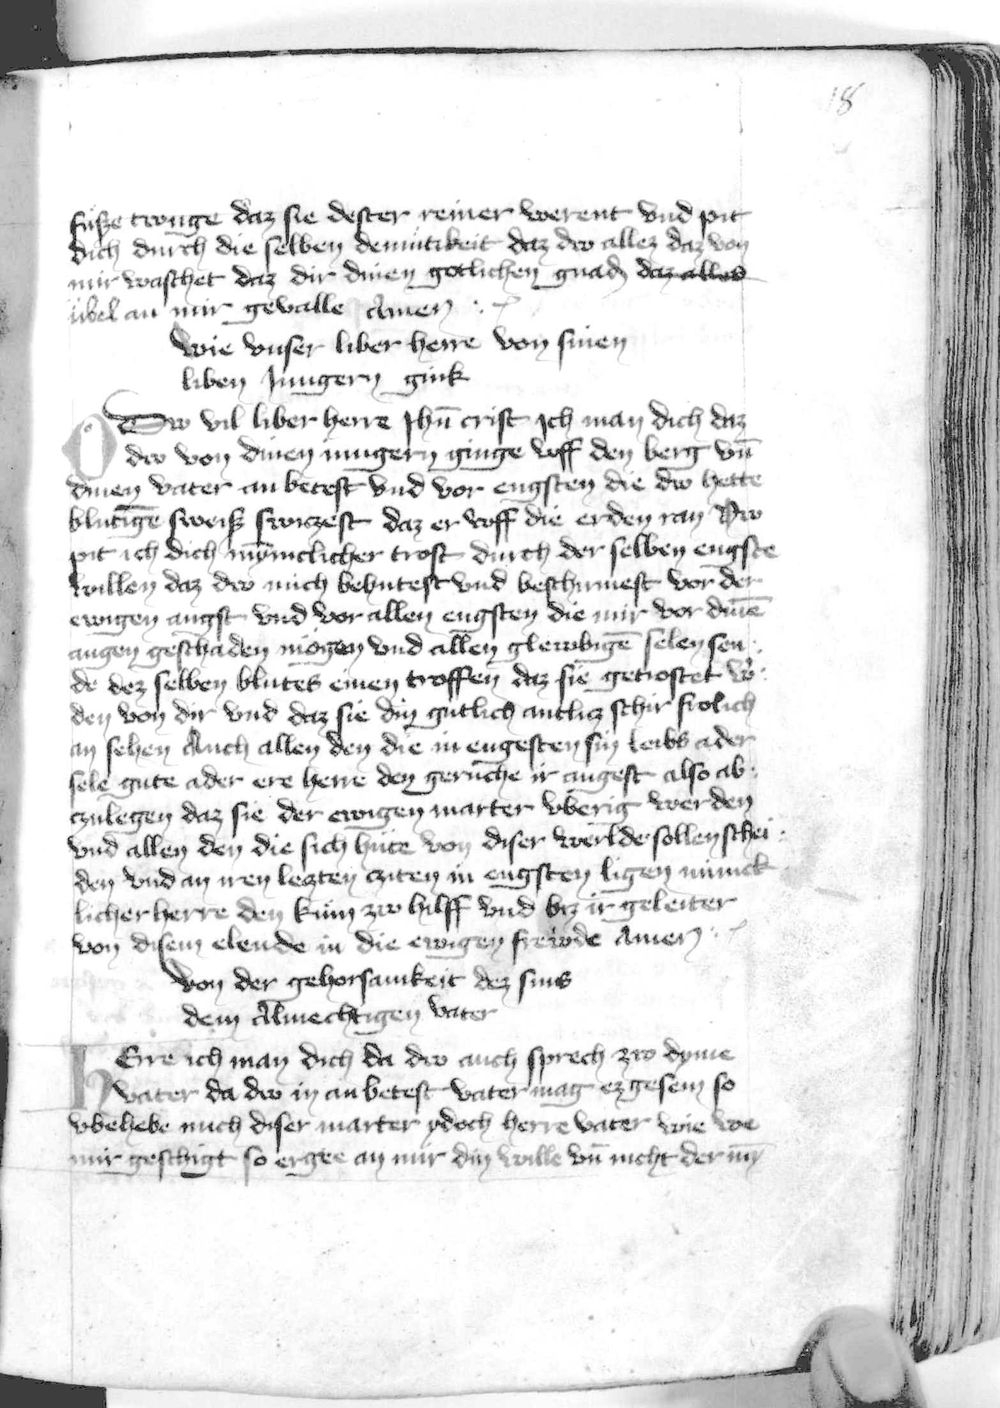 18
fusze twuge daz sie dester reiner werent vnd pit
dich durch die selben demutikeit daz dw allez daz von
mir waschet daz dir dinen gotlichen gnaden daz alles
ubel an mir gevalle Amen
Wie vnser liber herre von sinen
liben Jungern gink
O Dw vil liber herre Jhū crist Ich man dich daz
dw von dinen iungern ginge vff den berg vn̄
dinen vater an betest vnd vor engsten die dw hette
blutigē sweisz swiczest daz er vff die erden ran Dw
pit ich dich mynniclicher trost durch der selben engste
willen daz dw mich behutest vnd beschirmest vor der
ewigen angst vnd vor allen engsten die mir vor dinē
augen geschaden mögen vnd allen glewbigē selen sen
de dez selben blutes einen troffen daz sie getrostet w
den von dir vnd daz sie din gutlich antlicz schir frolich
an sehen Auch allen den die in engesten sin leibs ader
sele gute ader ere herre den geruche ir angest also ab
czulegen daz sie der ewigen marter vberig werden
vnd allen den die sich hute von diser werlde sollen schei
den vnd an iren leczten cziten in engsten ligen minnek
licher herre den kum zw hilff vnd bis ir geleiter
von disem elende in die ewigen frewde Amen
Von der gehorsamkeit dez suns
dem Almechtigen vater
HErre ich man dich da dw auch sprech zw dyme
vater da dw in an betest vater mag ez gesein so
vbehebe mich diser marter ydoch herre vater wie we
mir geschigt so ergee an mir din wille vn̄ nicht der mȳ